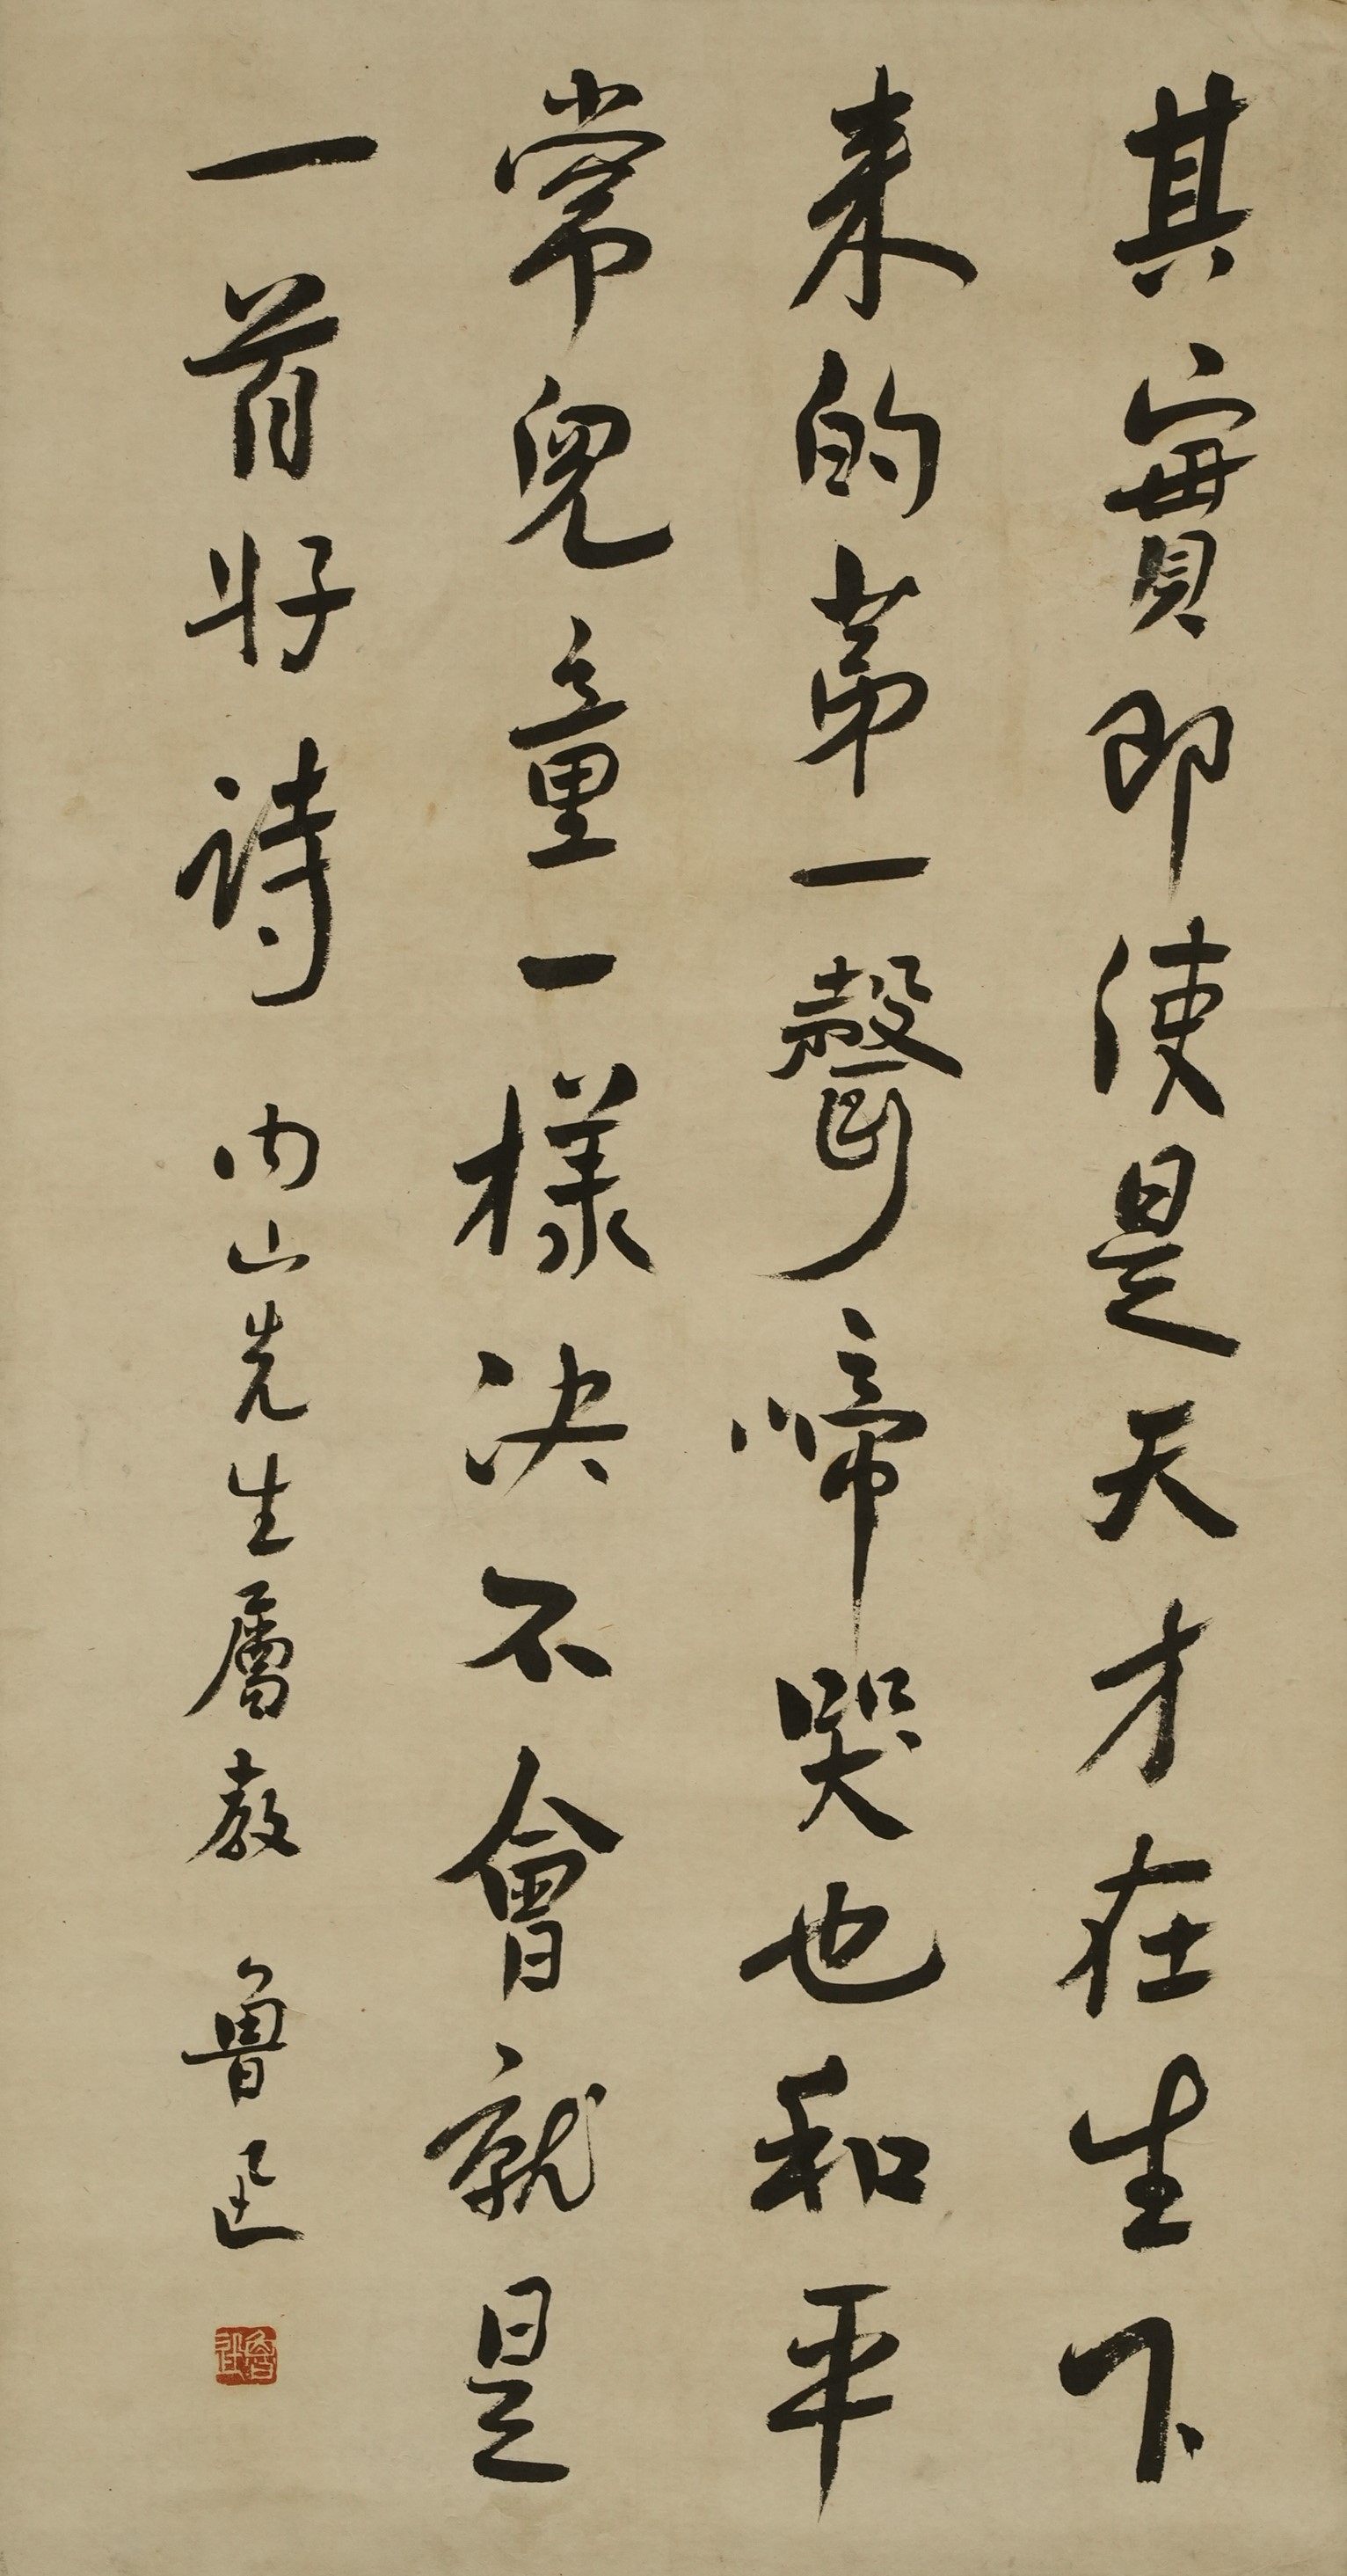 其實即使是天才在生下
来的第一聲啼哭也和平
常兒童一樣決不會就是
一首好詩 内山先生屬教 魯迅
魯迅